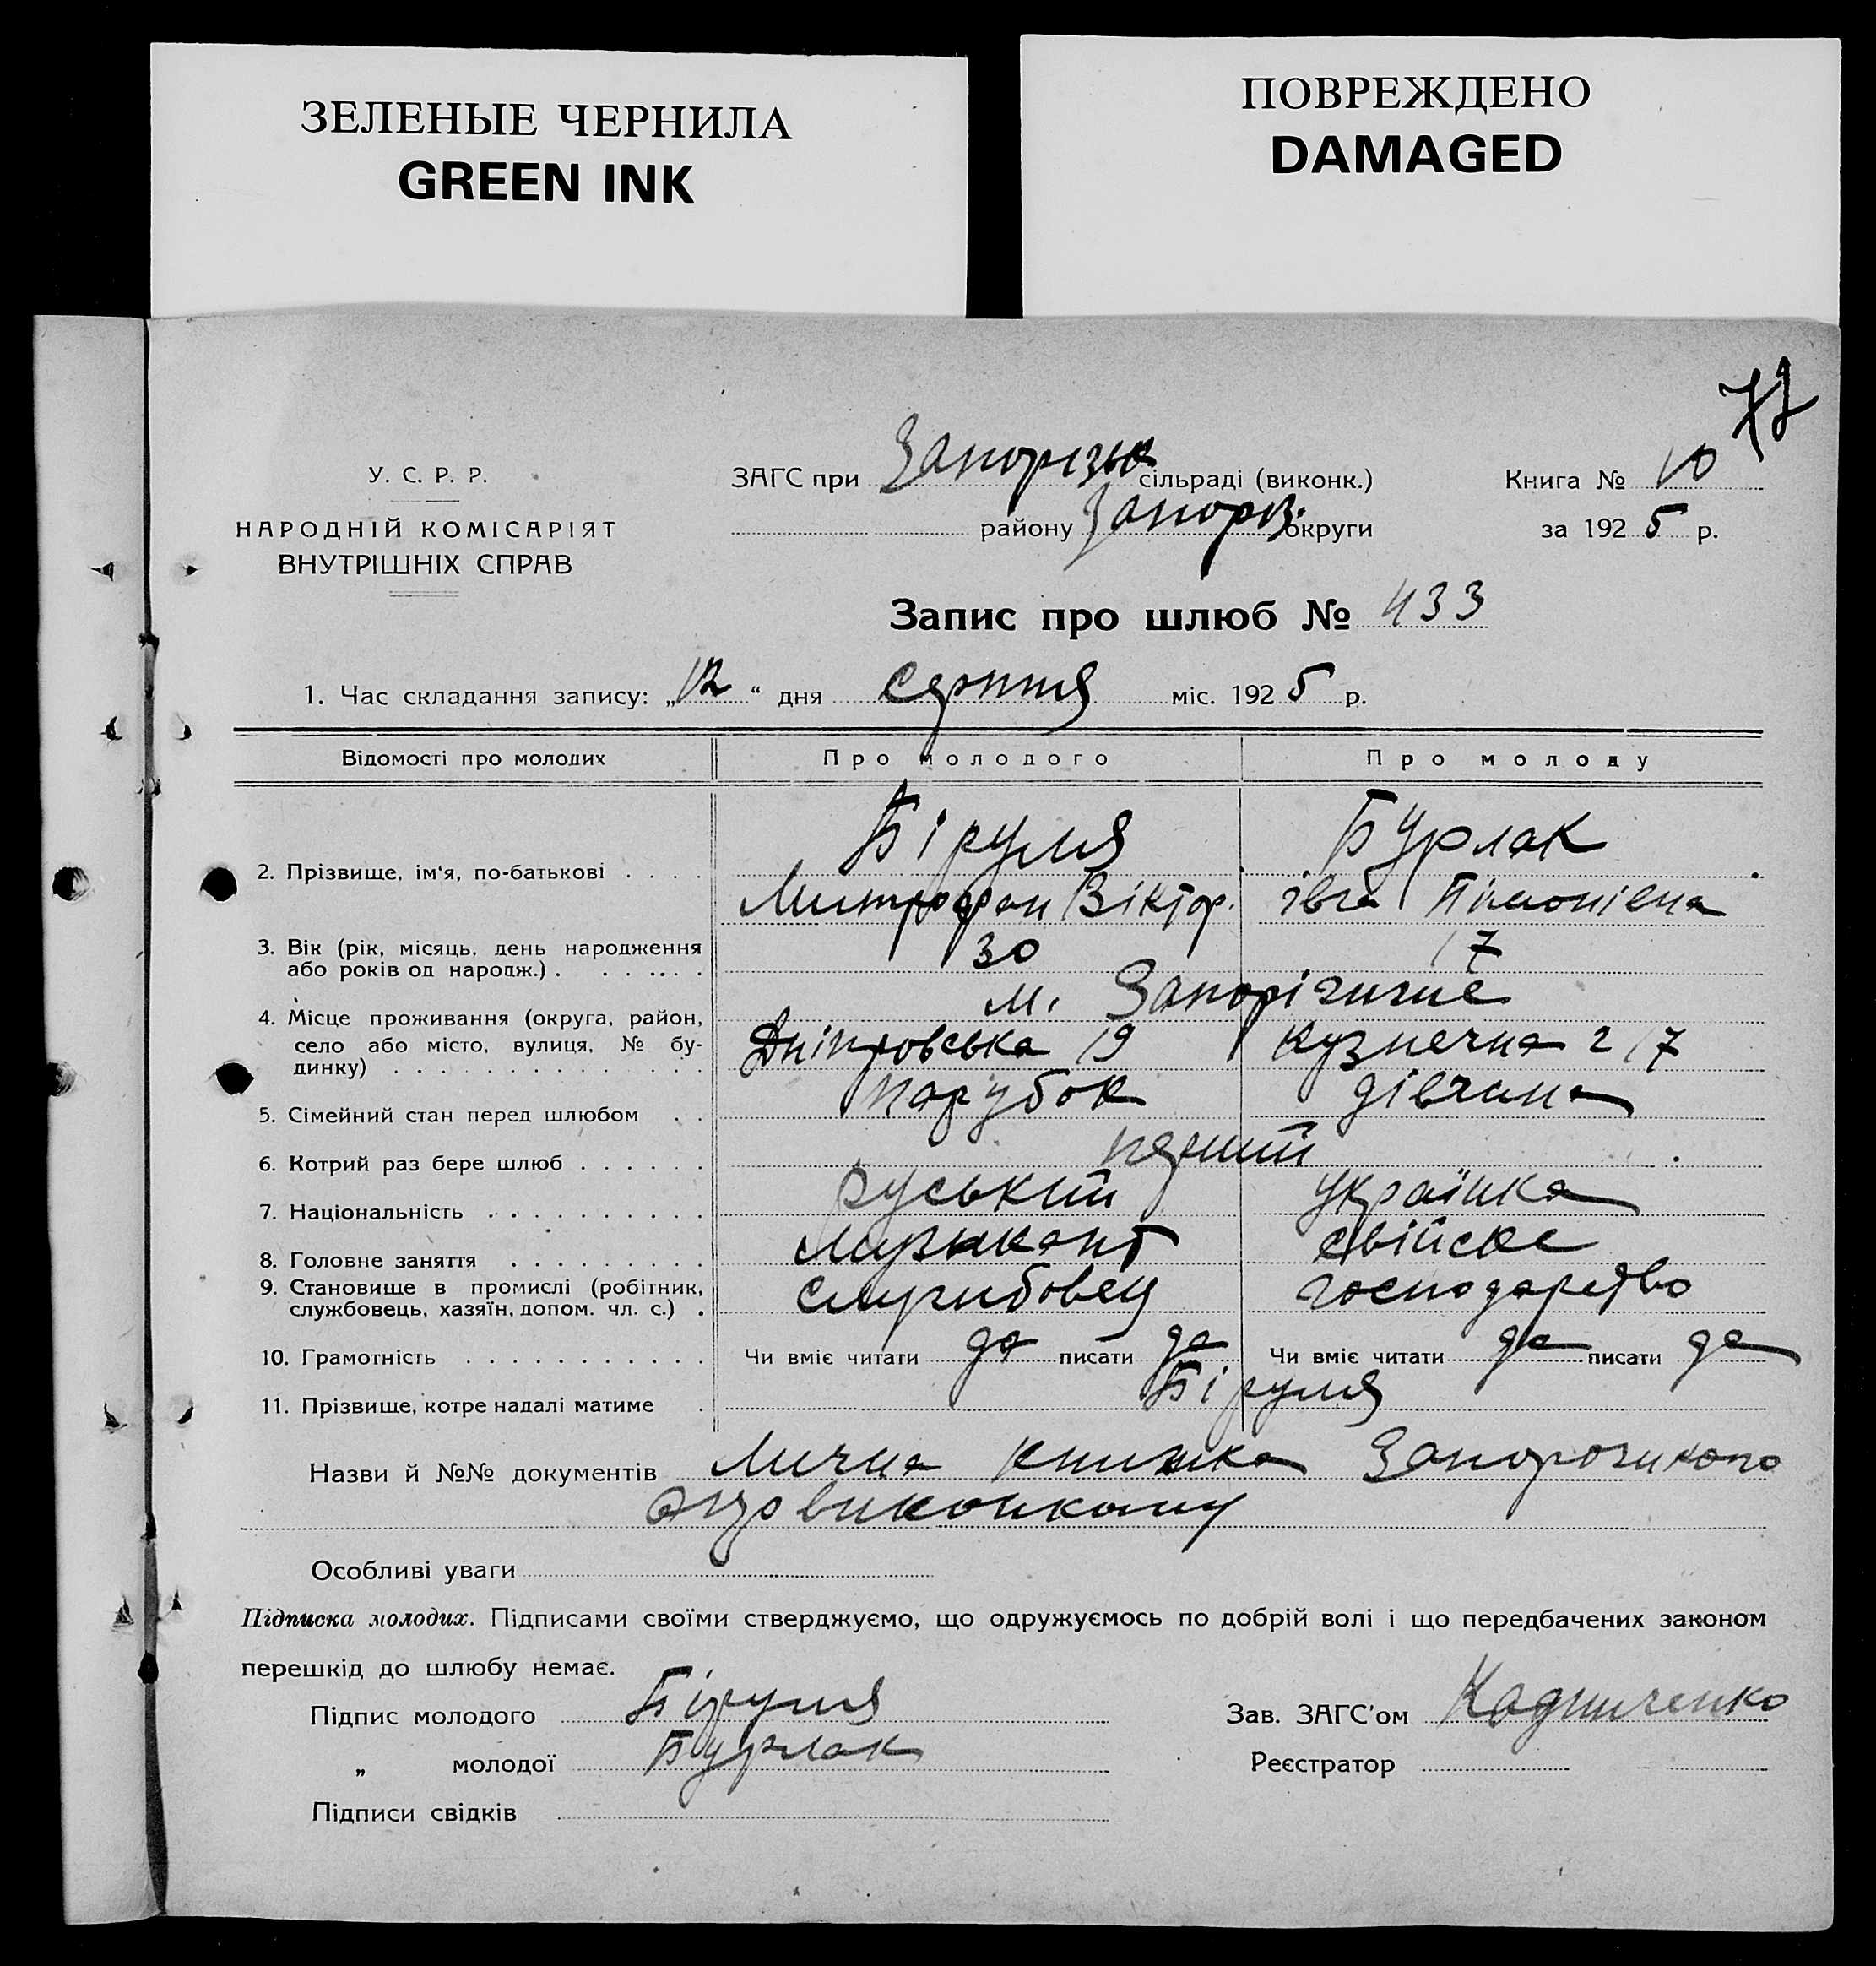 ЗЕЛЕНЫЕ ЧЕРНИЛА
GREEN INK
ПОВРЕЖДЕНО
DAMAGED
У. С. Р. Р.
НАРОДНІЙ КОМІСАРІЯТ
ВНУТРІШНІХ СПРАВ
ЗАГС при Запорізьк сільраді (виконк.)
району Запоріз. округи
Книга № 10
за 1925 р.
Запис про шлюб № 433
1. Час складання запису: „12“ дня серпня міс. 1925 р.
Відомості про молодих Про молодого Про молоду
2. Прізвище, ім'я, по-батькові . . . . Біруля Бурлак
Митрофан Віктор. івга
3. Вік (рік, місяць, день народження 30 17
або років од народж.) . . . . . . .
4. Місце проживання (округа, район, м. Запоріжжє
село або місто, вулиця, № бу- Дніпровська 19 Кузнечна 217
динку) . . . . . . . . . . . . . .
5. Сімейний стан перед шлюбом . . парубок дівчина
6. Котрий раз бере шлюб . . . . . . перший
7. Національність . . . . . . . . . . руський українка
8. Головне заняття . . . . . . . . . музыкант свійске
9. Становище в промислі (робітник, службовець, хазяїн, допом. чл. с.) . службовец господарство
10. Грамотність . . . . . . . . . . . Чи вміє читати да писати да Чи вміє читати да писати да
11. Прізвище, котре надалі матиме . Біруля
Назви й №№ документів Лична книжка
Особливі уваги
Підписка молодих. Підписами своїми стверджуємо, що одружуємось по добрій волі і що передбачених законом
перешкід до шлюбу немає.
Підпис молодого Біруля
„ молодої Бурлак
Підписи свідків
Зав. ЗАГС'ом
Реєстратор